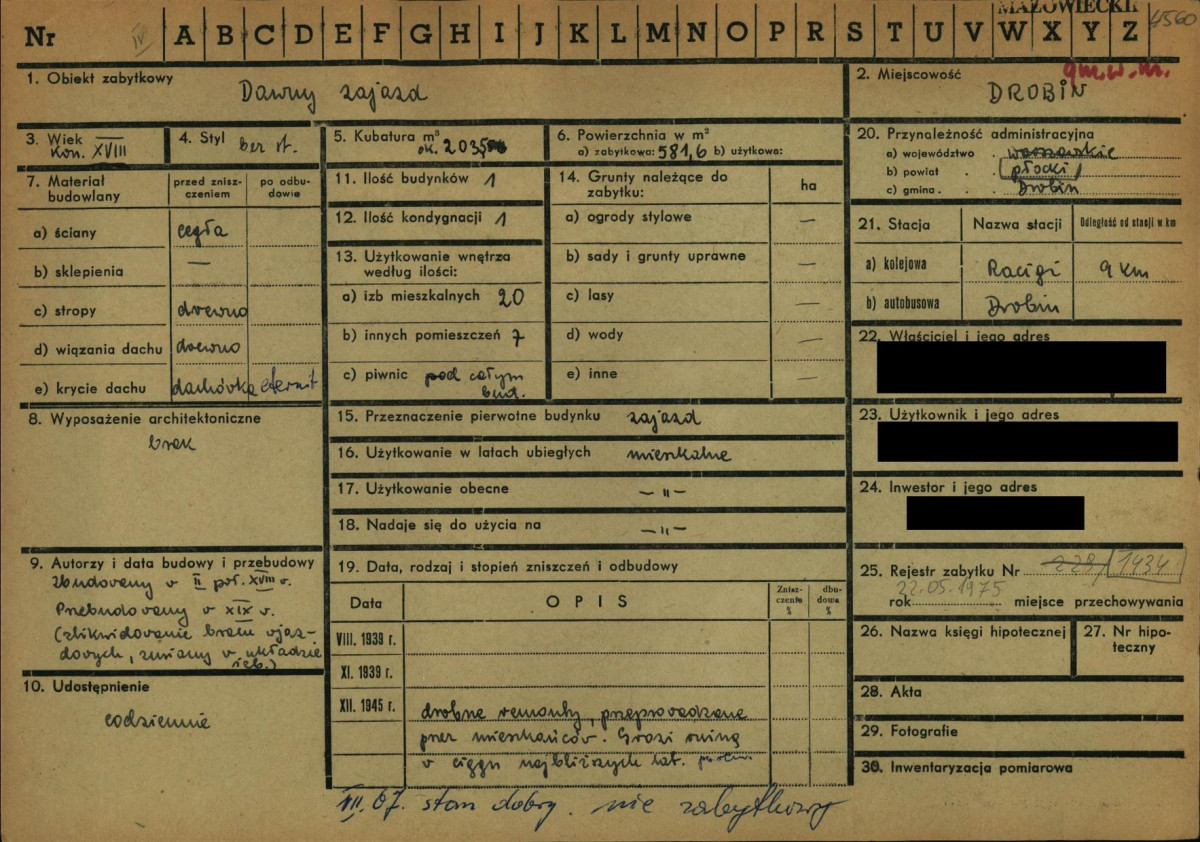 MAZOWIECKI
Nr IV A B C D E F G H I J K L M N O P R S T U V W X Y Z 4560
1. Obiekt zabytkowy
Dawny zajazd
2. Miejscowość
gm.w.m.
DROBIN
3. Wiek
Kon. XVIII
4. Styl bez st.
5. Kubatura m³
ok. 2035
6. Powierzchnia w m²
a) zabytkowa: 581,6 b) użytkowa:
7. Materiał budowlany
przed zniszczeniem
po odbudowie
a) ściany cegła
b) sklepienia —
c) stropy drewno
d) wiązania dachu drewno
e) krycie dachu dachówka eternit
8. Wyposażenie architektoniczne
brak
9. Autorzy i data budowy i przebudowy
Zbudowany w II poł. XVIII w.
Przebudowany w XIX w.
(zlikwidowanie bram wjaz-
dowych, zmiany w układzie
10. Udostępnienie
codziennie
11. Ilość budynków 1
12. Ilość kondygnacji 1
13. Użytkowanie wnętrza
według ilości:
a) izb mieszkalnych 20
b) innych pomieszczeń 7
c) piwnic pod całym
bud.
14. Grunty należące do
zabytku:
ha
a) ogrody stylowe —
b) sady i grunty uprawne —
c) lasy —
d) wody —
e) inne —
15. Przeznaczenie pierwotne budynku zajazd
16. Użytkowanie w latach ubiegłych mieszkalne
17. Użytkowanie obecne — „ —
18. Nadaje się do użycia na — „ —
19. Data, rodzaj i stopień zniszczeń i odbudowy
Data OPIS Zniszczenie % dbudowa %
VIII. 1939 r.
XI. 1939 r.
XII. 1945 r. drobne remonty, przeprowadzane
przez mieszkańców. Grozi ruiną
w ciągu najbliższych lat.
VII. 67. stan dobry. nie zabytkowy
20. Przynależność administracyjna
a) województwo warszawskie
b) powiat płocki
c) gmina Drobin
21. Stacja Nazwa stacji Odległość od stacji w km
a) kolejowa Racigi 9 km
b) autobusowa Drobin
22. Właściciel i jego adres
23. Użytkownik i jego adres
24. Inwestor i jego adres
25. Rejestr zabytku Nr 228/ 1434
22.05.1975
rok miejsce przechowywania
26. Nazwa księgi hipotecznej
27. Nr hipoteczny
28. Akta
29. Fotografie
30. Inwentaryzacja pomiarowa